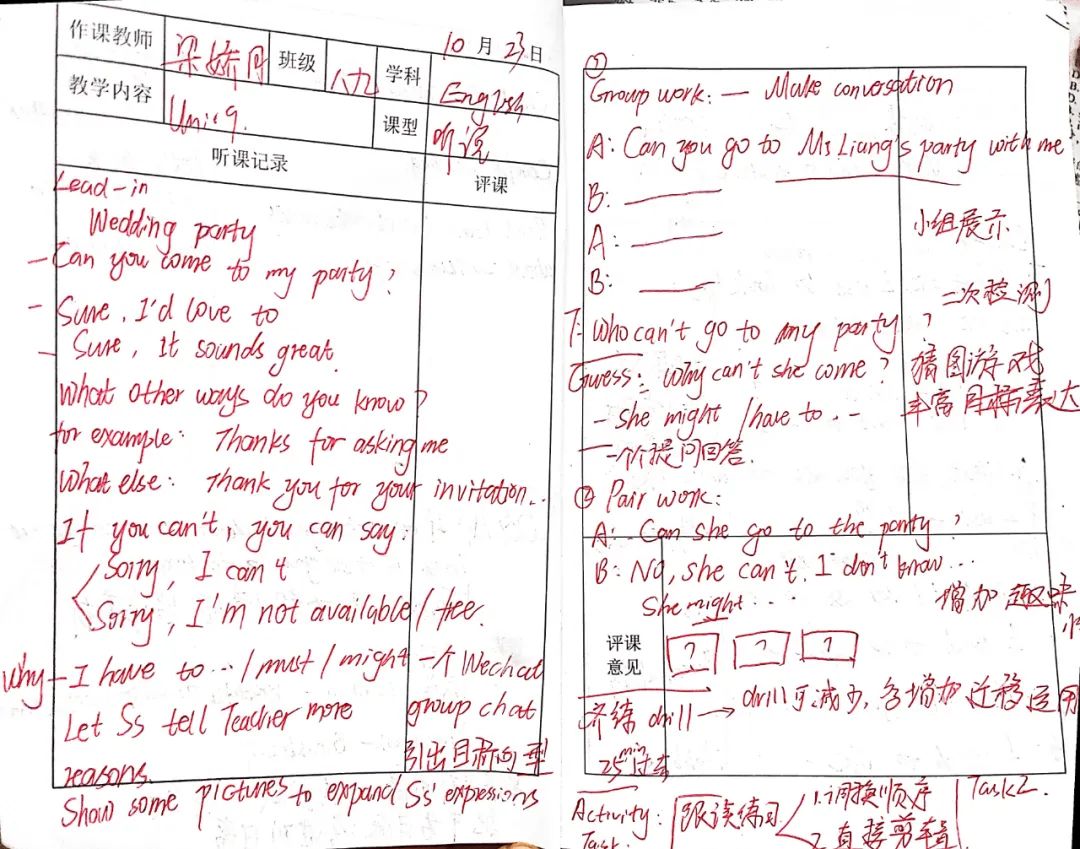 10月23日
作课教师 梁娇月 班级 八九 学科 English
教学内容 Unit 9. 课型 听说
听课记录 评课
Lead-in
Wedding party
- Can you come to my party?
- Sure, I'd love to
- Sure, It sounds great.
What other ways do you know?
for example: Thanks for asking me
What else: Thank you for your invitation...
If you can't, you can say:
Sorry, I can't
Sorry, I'm not available / free.
why - I have to... / must / might 一个 Wechat
Let Ss tell Teacher more group chat
reasons. 引出目标句型
Show some pictures to expand Ss' expressions
①
Group work: — Make conversation
A: Can you go to Ms Liang's party with me
B:
A: 小组展示
B:
二次检测
T: Who can't go to my party?
Guess: Why can't she come? 猜图游戏
- She might / have to... 丰富目标表达
一个个提问回答.
② Pair work:
A: Can she go to the party?
B: No, she can't. I don't know...
She might... 增加趣味
评课意见 ? ? ?
齐练 drill → drill可减少, 多增加迁移运用
25min
Activity: 跟读练习 1.调换顺序 Task2.
Task 2.直接剪辑